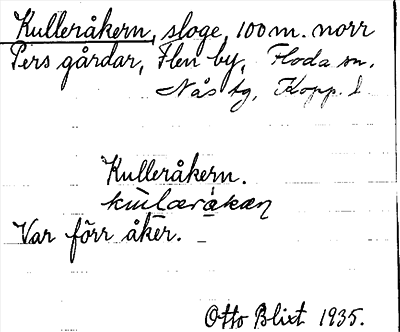 Kulleråkern, sloge, 100 m. norr
Pers gårdar, Flen by, Floda sn,
Nås tg, Kopp. l.
Kulleråkern.
Var förr åker.
Otto Blixt 1935.